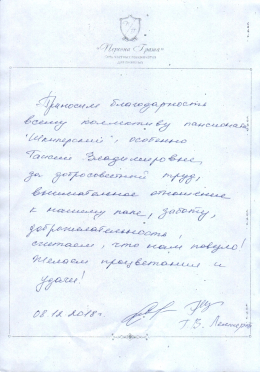 Приносим благодарность
всему коллективу пансионата
"Шонгерский", особенно
Владимировне
за добросовестный труд,
внимательное отношение
к нашему папе, заботу,
доброжелательность,
считаем, что нам повезло!
Желаем процветания и
удачи!
08.12.2018г.